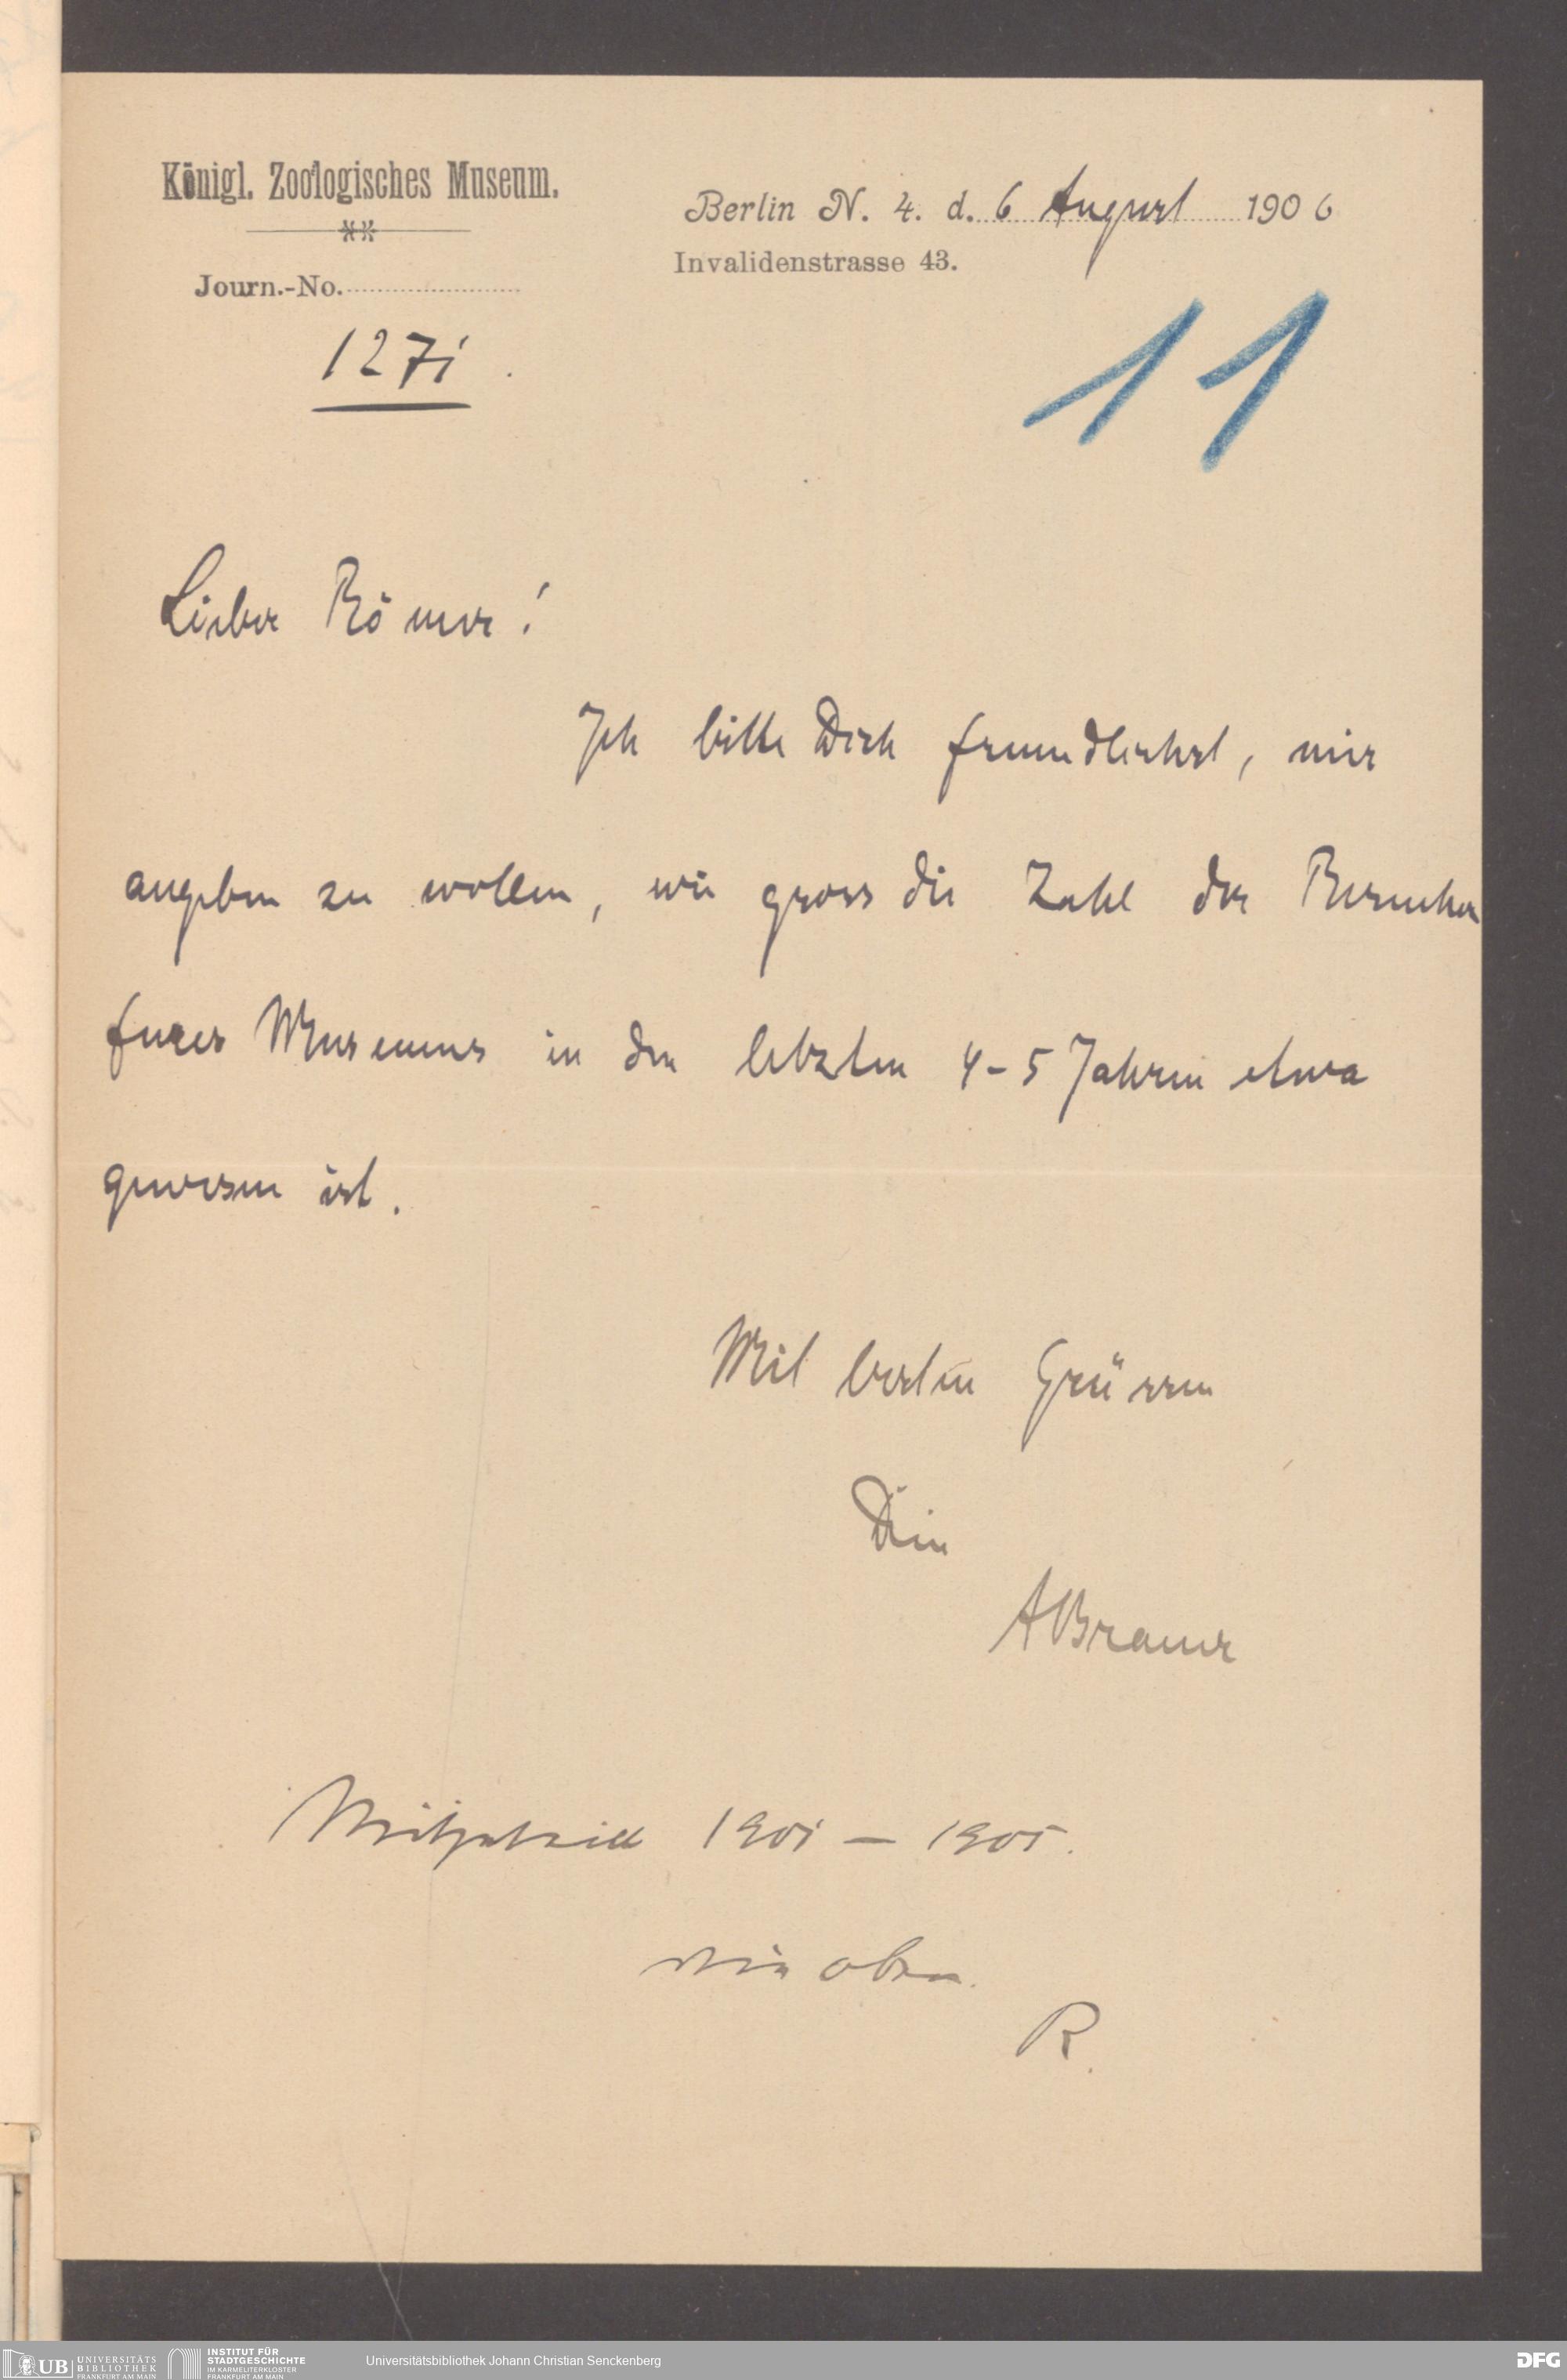 Königl. Zoologisches Museum.
Journ.-No.
1271.
Berlin N. 4. d. 6 August 1906
Invalidenstrasse 43.
11
Lieber Römer!
Ich bitte Dich freundlichst, mir
angeben zu wollen, wie gross die Zahl der Besucher
Eures Museums in den letzten 4-5 Jahren etwa
gewesen ist.
Mit besten Grüssen
Dein
ABrauer
Mitgeteilt 1901 — 1905.
wie oben.
R.
UB UNIVERSITÄTS BIBLIOTHEK FRANKFURT AM MAIN
INSTITUT FÜR STADTGESCHICHTE IM KARMELITERKLOSTER FRANKFURT AM MAIN
Universitätsbibliothek Johann Christian Senckenberg
DFG